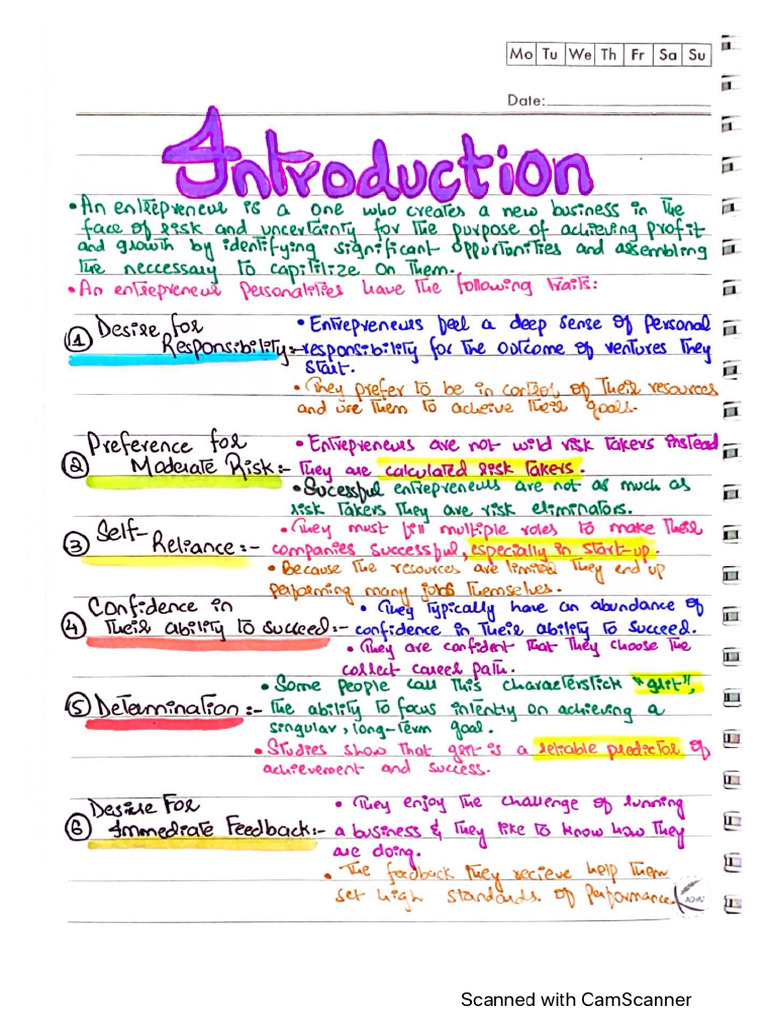 Mo Tu We Th Fr Sa Su
Date:
Introduction
• An entrepreneur is a one who creates a new business in the
face of risk and uncertainty for the purpose of achieving profit
and growth by identifying significant opportunities and assembling
the neccessary to capitilize on them.
• An entrepreneur personalities have the following traits:
① Desire for
Responsibility:-
• Entrepreneurs feel a deep sense of personal
responsibility for the outcome of ventures they
start.
• They prefer to be in control of their resources
and use them to acheive their goals.
② Preference for
Moderate Risk:-
• Entrepreneurs are not wild risk takers instead
they are calculated risk takers.
• Sucessful entrepreneurs are not as much as
risk takers they are risk eliminators.
③ Self-
Reliance:-
• They must fill multiple roles to make their
companies successful, especially in start-up.
• Because the resources are limited they end up
performing many jobs themselves.
④ Confidence in
their ability to succeed:-
• They typically have an abundance of
confidence in their ability to succeed.
• They are confident that they choose the
collect career path.
⑤ Determination:-
• Some people call this characterstick "grit",
the ability to focus intently on achieving a
singular, long-term goal.
• Studies show that grit is a reliable predictor of
achievement and success.
⑥ Desire For
Immediate Feedback:-
• They enjoy the challenge of running
a business & they like to know how they
are doing.
• The feedback they recieve help them
set high standards of performance.
Scanned with CamScanner